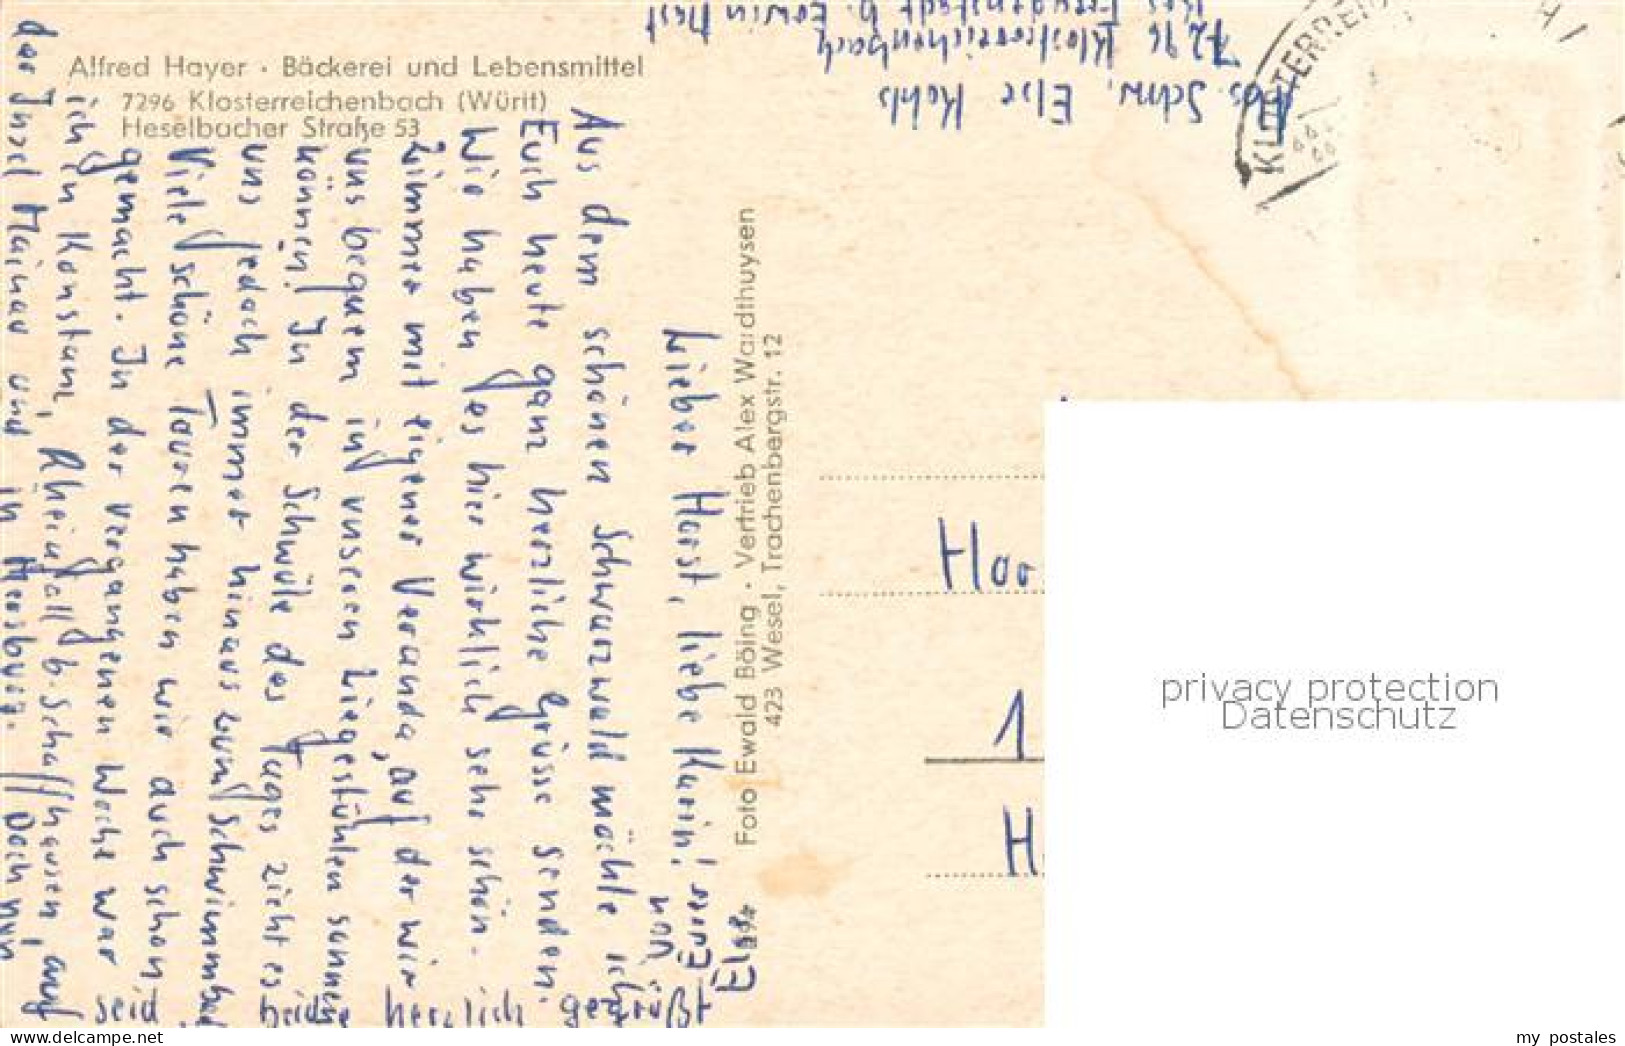 Alfred Hayer · Bäckerei und Lebensmittel
7296 Klosterreichenbach (Württ)
Heselbacher Straße 53
Lieber Horst, liebe Karin!
Aus dem schönen Schwarzwald möchte ich
Euch heute ganz herzliche Grüsse senden.
Wir haben es hier wirklich sehr schön.
Zimmer mit eigener Veranda, auf der wir
uns bequem in unseren Liegestühlen sonnen
können! In der Schwüle des Tages zieht es
uns jedoch immer hinaus zum Schwimmbad
Viele schöne Touren haben wir auch schon
gemacht. In der vergangenen Woche war
ich in Konstanz, Rheinfall b Schaffhausen, auf
der Insel Mainau und in Meersburg. Doch nun
seid beide herzlich gegrüßt
von Eurer
Else
Abs. Schw. Else Kohls
7296 Klosterreichenbach
Krs Freudenstadt b. Erwin Mast
Foto Ewald Böing · Vertrieb Alex Wardthuysen
423 Wesel, Trachenbergstr. 12
KLOSTERREI
Hor
1
H
privacy protection
Datenschutz
my postales